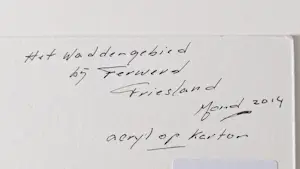 Het Waddengebied
bij Ferwerd
Friesland
Mond 2014
acryl op karton